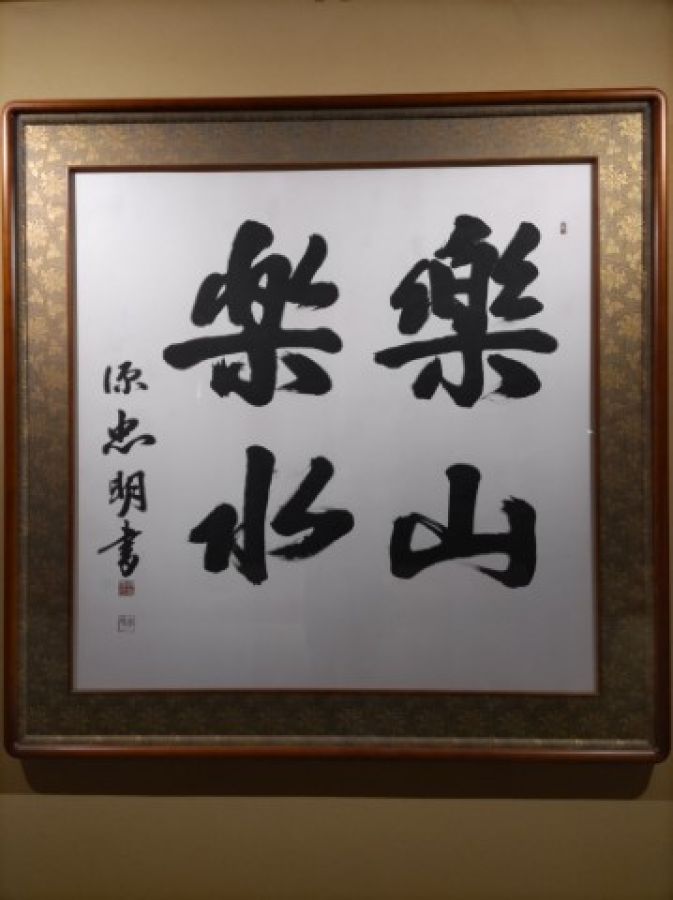 樂山
楽水
源忠明書